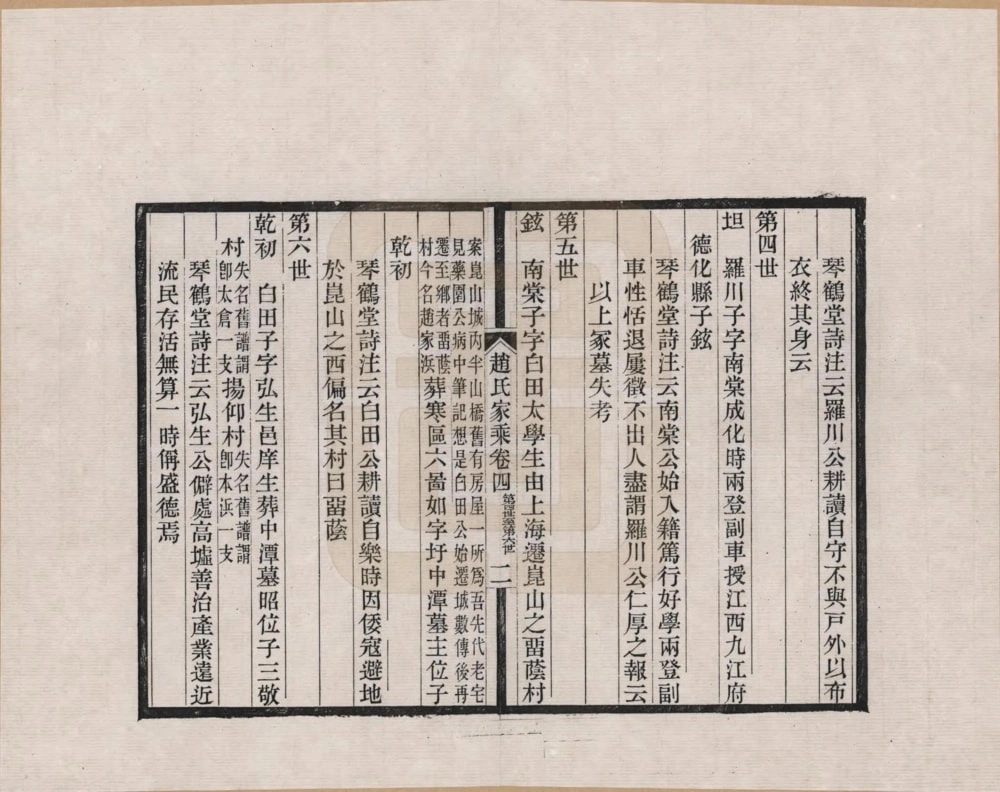 琴鶴堂詩注云羅川公耕讀自守不與戸外以布
衣終其身云
第四世
坦　羅川子字南棠成化時兩登副車授江西九江府
德化縣子鉉
琴鶴堂詩注云南棠公始入籍篤行好學兩登副
車性恬退屢徵不出人盡謂羅川公仁厚之報云
以上冢墓失考
第五世
鉉　南棠子字白田太學生由上海遷崑山之畱蔭村
趙氏家乘卷四　第四世至第六世　二
案崑山城內半山橋舊有房屋一所爲吾先代老宅
見藥園公病中筆記想是白田公始遷城數傳後再
遷至鄉者畱蔭
村今名趙家浜
葬寒區六啚如字圩中潭墓主位子
乾初
琴鶴堂詩注云白田公耕讀自樂時因倭寇避地
於崑山之西偏名其村曰畱蔭
第六世
乾初　白田子字弘生邑庠生葬中潭墓昭位子三敬
村失名舊譜謂
卽太倉一支
揚仰村
失名舊譜謂
卽本浜一支
琴鶴堂詩注云弘生公僻處高墟善治產業遠近
流民存活無算一時稱盛德焉